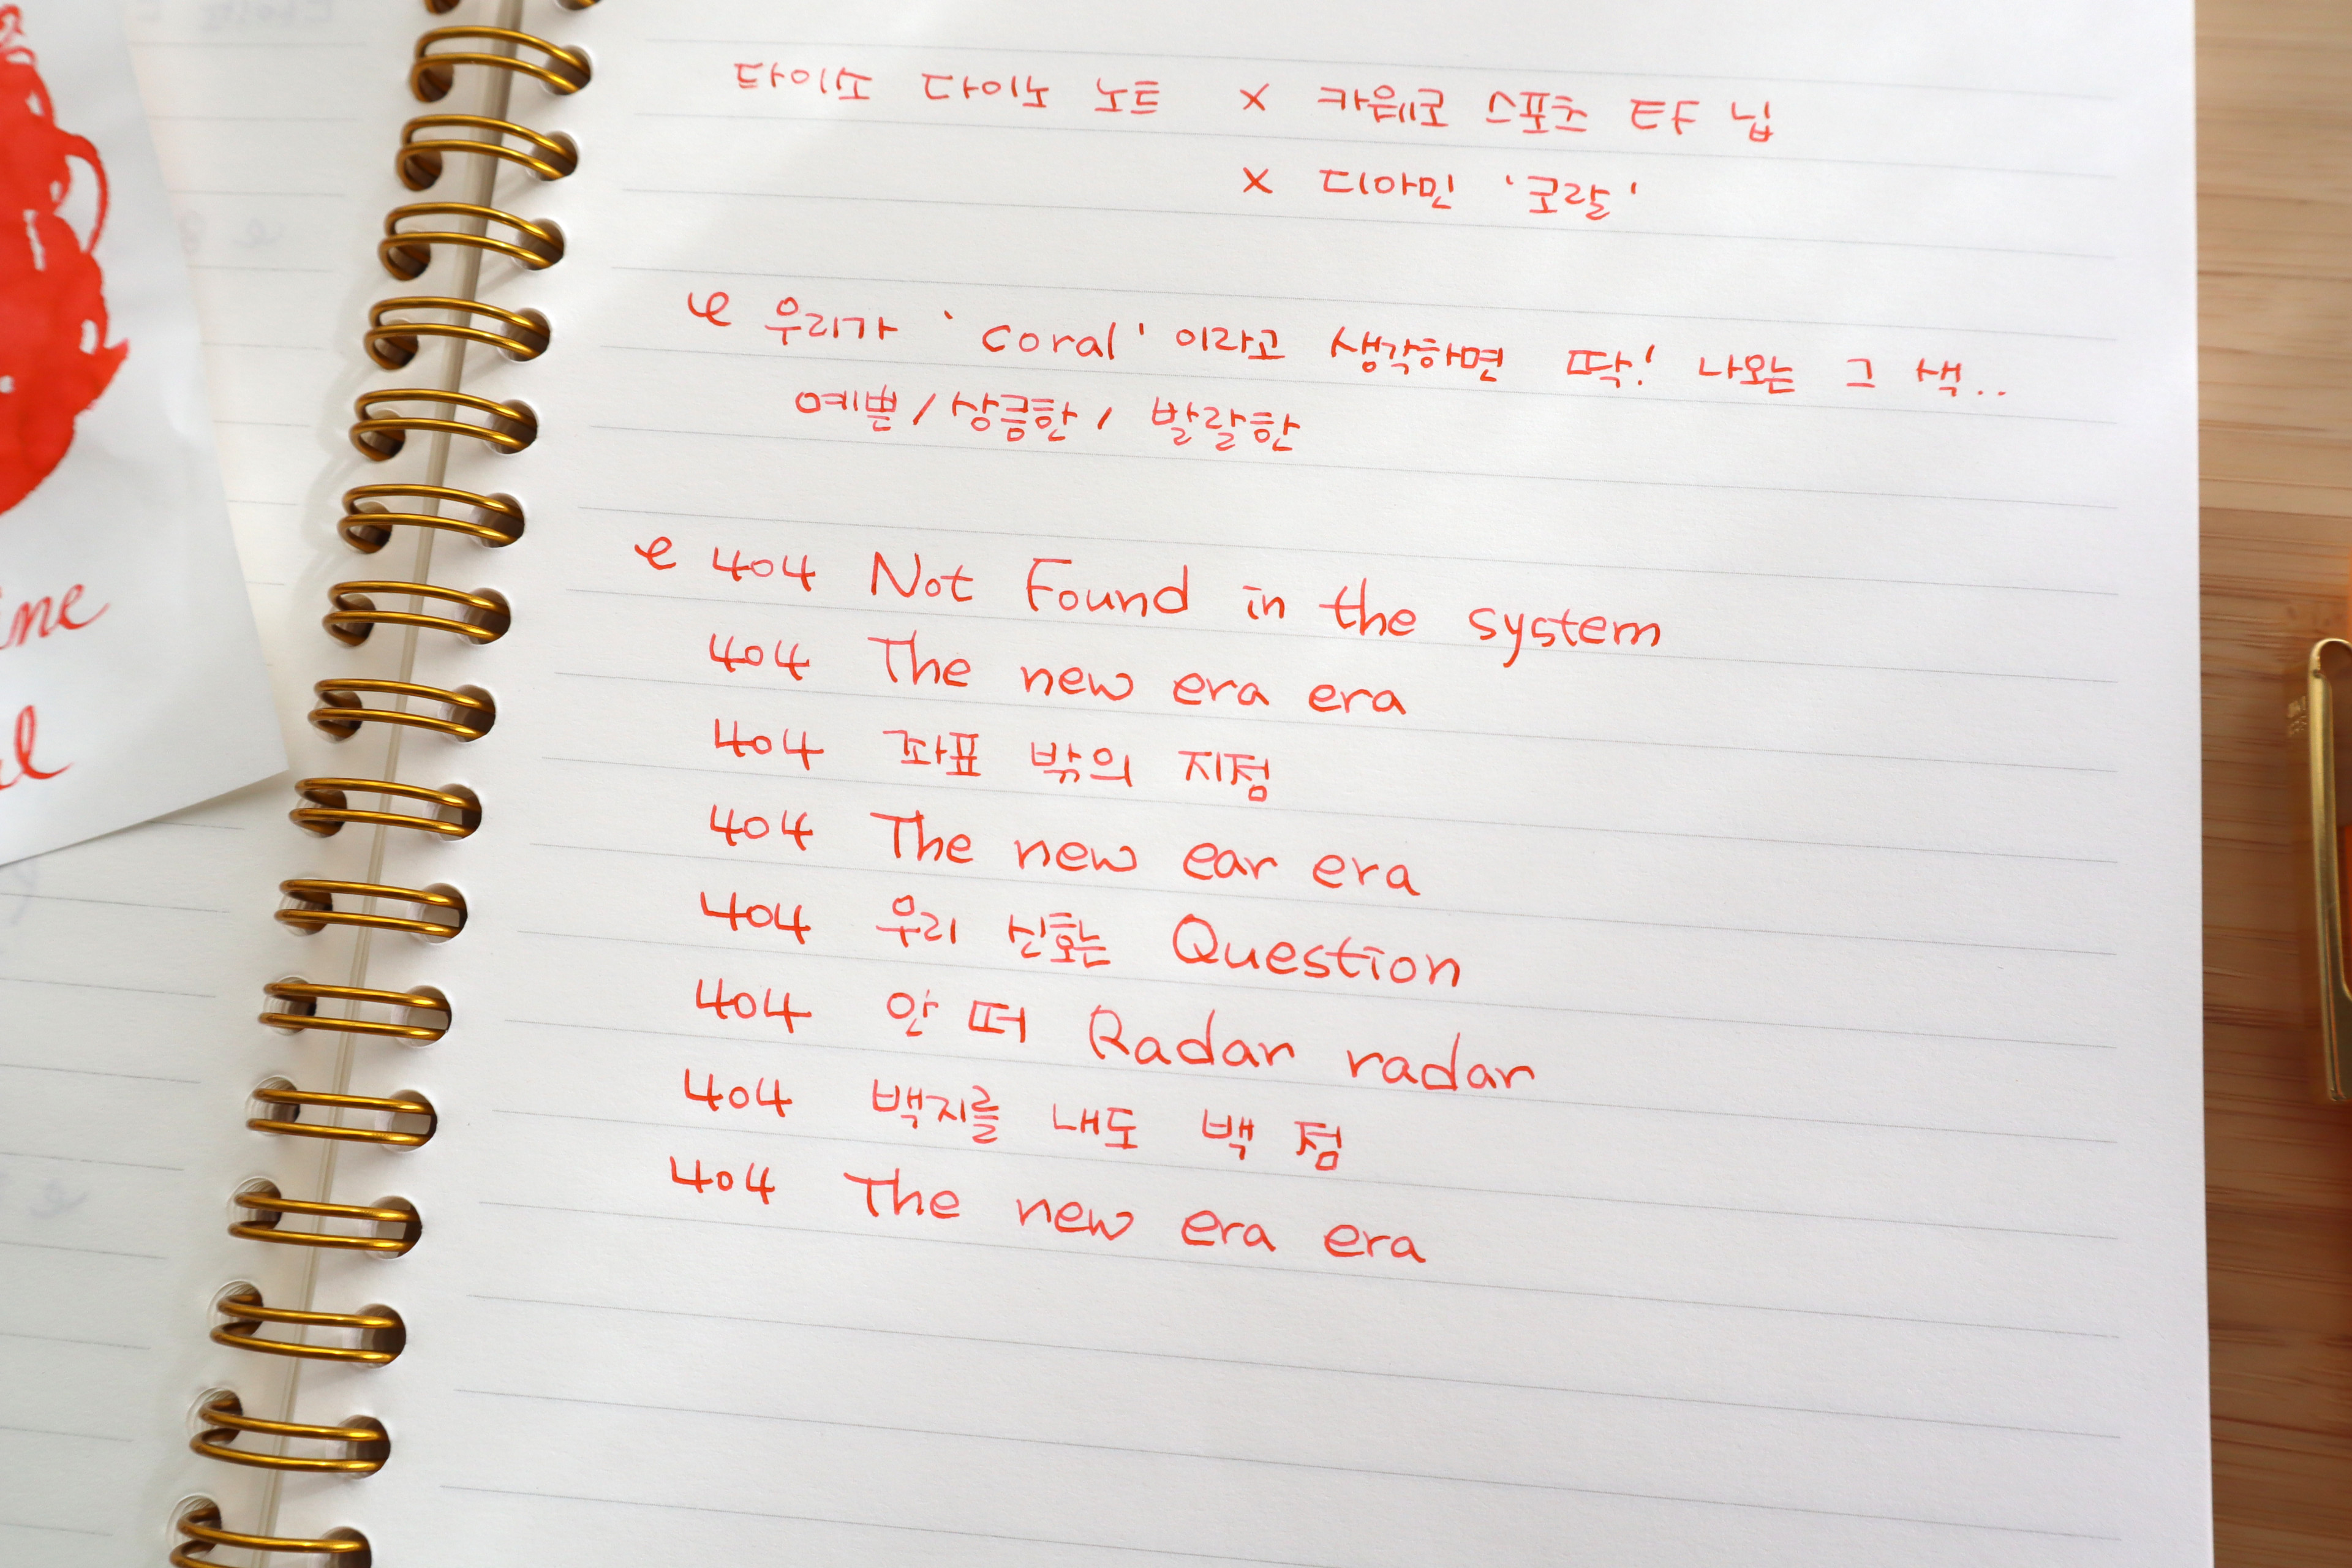 다이소 다이노 노트 × 카웨코 스포츠 EF 닙
× 디아민 '코랄'
e 우리가 'coral' 이라고 생각하면 딱! 나오는 그 색..
예쁜 / 상큼한 / 발랄한
e 404 Not Found in the system
404 The new era era
404 좌표 밖의 지점
404 The new ear era
404 우리 신화는 Question
404 안 떠 Radar radar
404 백지를 내도 백 점
404 The new era era